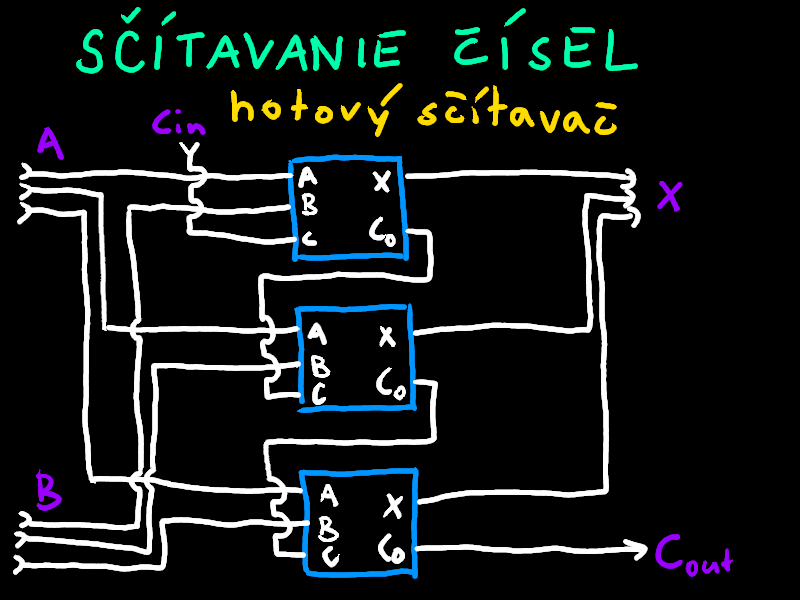 SČÍTAVANIE ČÍSEL
hotový sčítavač
Cin
A
A X
B
C Co
X
A X
B
C Co
B
A X
B
C Co
Cout